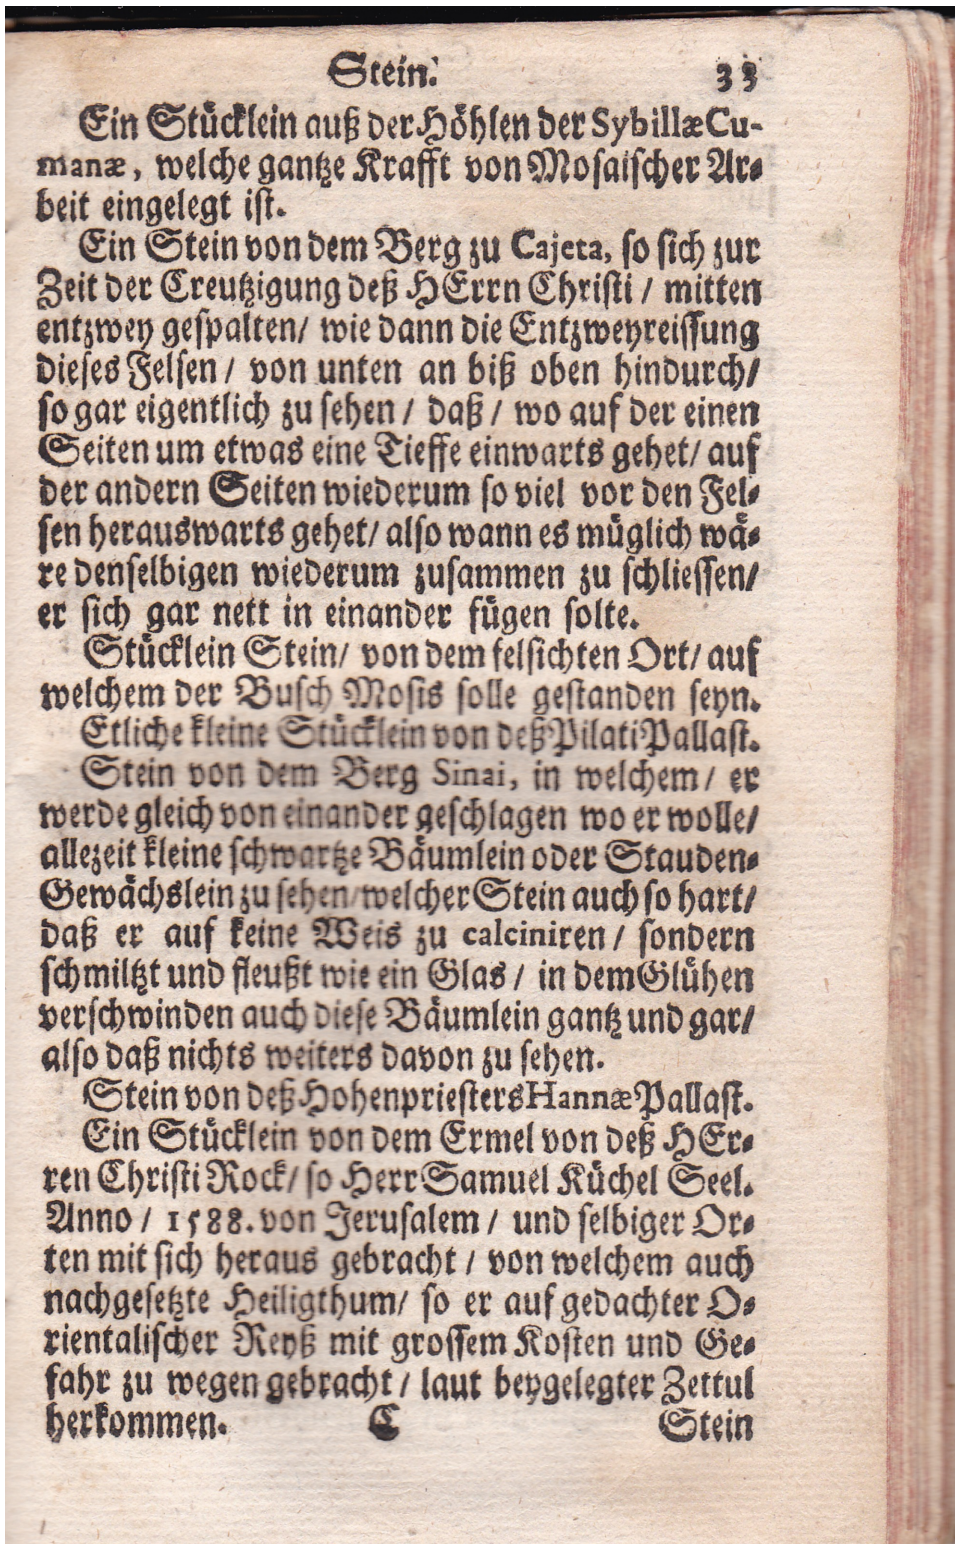 Stein. 33
Ein Stücklein auß der Höhlen der Sybillæ Cu-
manæ, welche gantze Krafft von Mosaischer Ar-
beit eingelegt ist.
Ein Stein von dem Berg zu Cajeta, so sich zur
Zeit der Creutzigung deß HErrn Christi / mitten
entzwey gespalten / wie dann die Entzweyreissung
dieses Felsen / von unten an biß oben hindurch /
so gar eigentlich zu sehen / daß / wo auf der einen
Seiten um etwas eine Tieffe einwarts gehet / auf
der andern Seiten wiederum so viel vor den Fel-
sen herauswarts gehet / also wann es müglich wä-
re denselbigen wiederum zusammen zu schliessen /
er sich gar nett in einander fügen solte.
Stücklein Stein / von dem felsichten Ort / auf
welchem der Busch Mosis solle gestanden seyn.
Etliche kleine Stücklein von deß Pilati Pallast.
Stein von dem Berg Sinai, in welchem / er
werde gleich von einander geschlagen wo er wolle /
allezeit kleine schwartze Bäumlein oder Stauden-
Gewächslein zu sehen / welcher Stein auch so hart /
daß er auf keine Weis zu calciniren / sondern
schmiltzt und fleußt wie ein Glas / in dem Glühen
verschwinden auch diese Bäumlein gantz und gar /
also daß nichts weiters davon zu sehen.
Stein von deß Hohenpriesters Hannæ Pallast.
Ein Stücklein von dem Ermel von deß HEr-
ren Christi Rock / so Herr Samuel Küchel Seel.
Anno / 1588. von Jerusalem / und selbiger Or-
ten mit sich heraus gebracht / von welchem auch
nachgesetzte Heiligthum / so er auf gedachter O-
rientalischer Reyß mit grossem Kosten und Ge-
fahr zu wegen gebracht / laut beygelegter Zettul
herkommen. C Stein